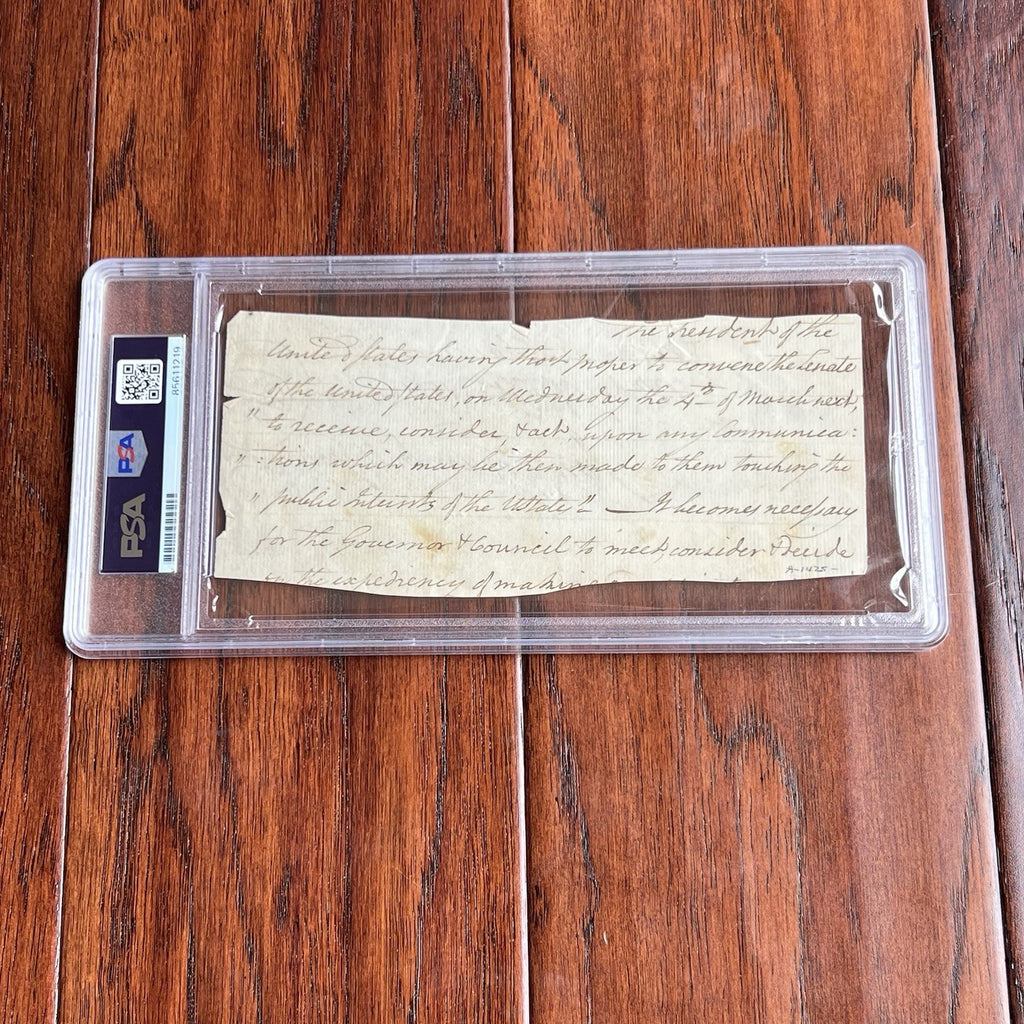 The President of the
United States having thot proper to convene the senate
of the United States, on Wednesday the 4th of March next,
" to receive, consider, & act upon any Communica:
" :tions which may be then made to them touching the
" public Interests of the UState" — It becomes necessary
for the Governor & Council to meet, consider & decide
on the expediency of making
A-1425-
PSA
PSA
85611219